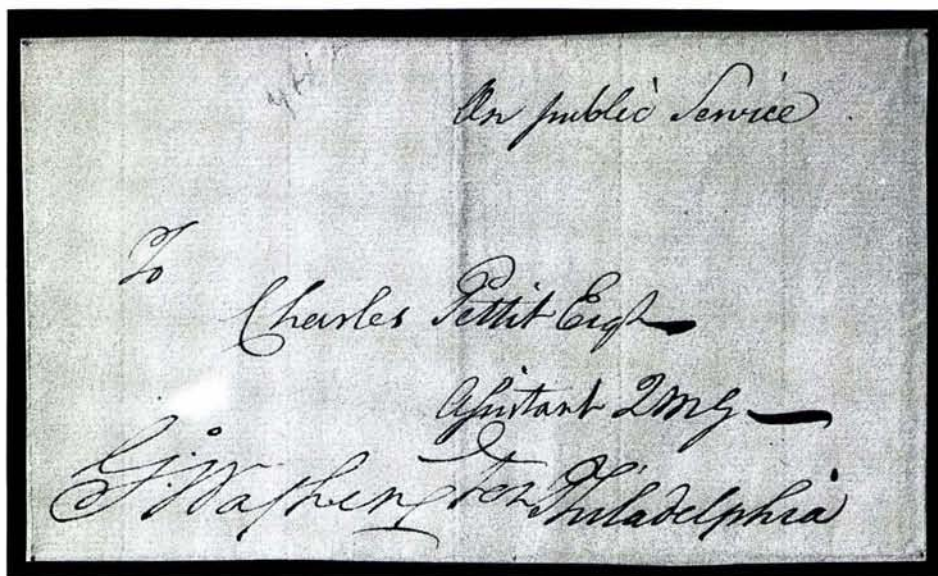 On public Service
To
Charles Pettit Esqr
Assistant QMG
G: Washington Philadelphia